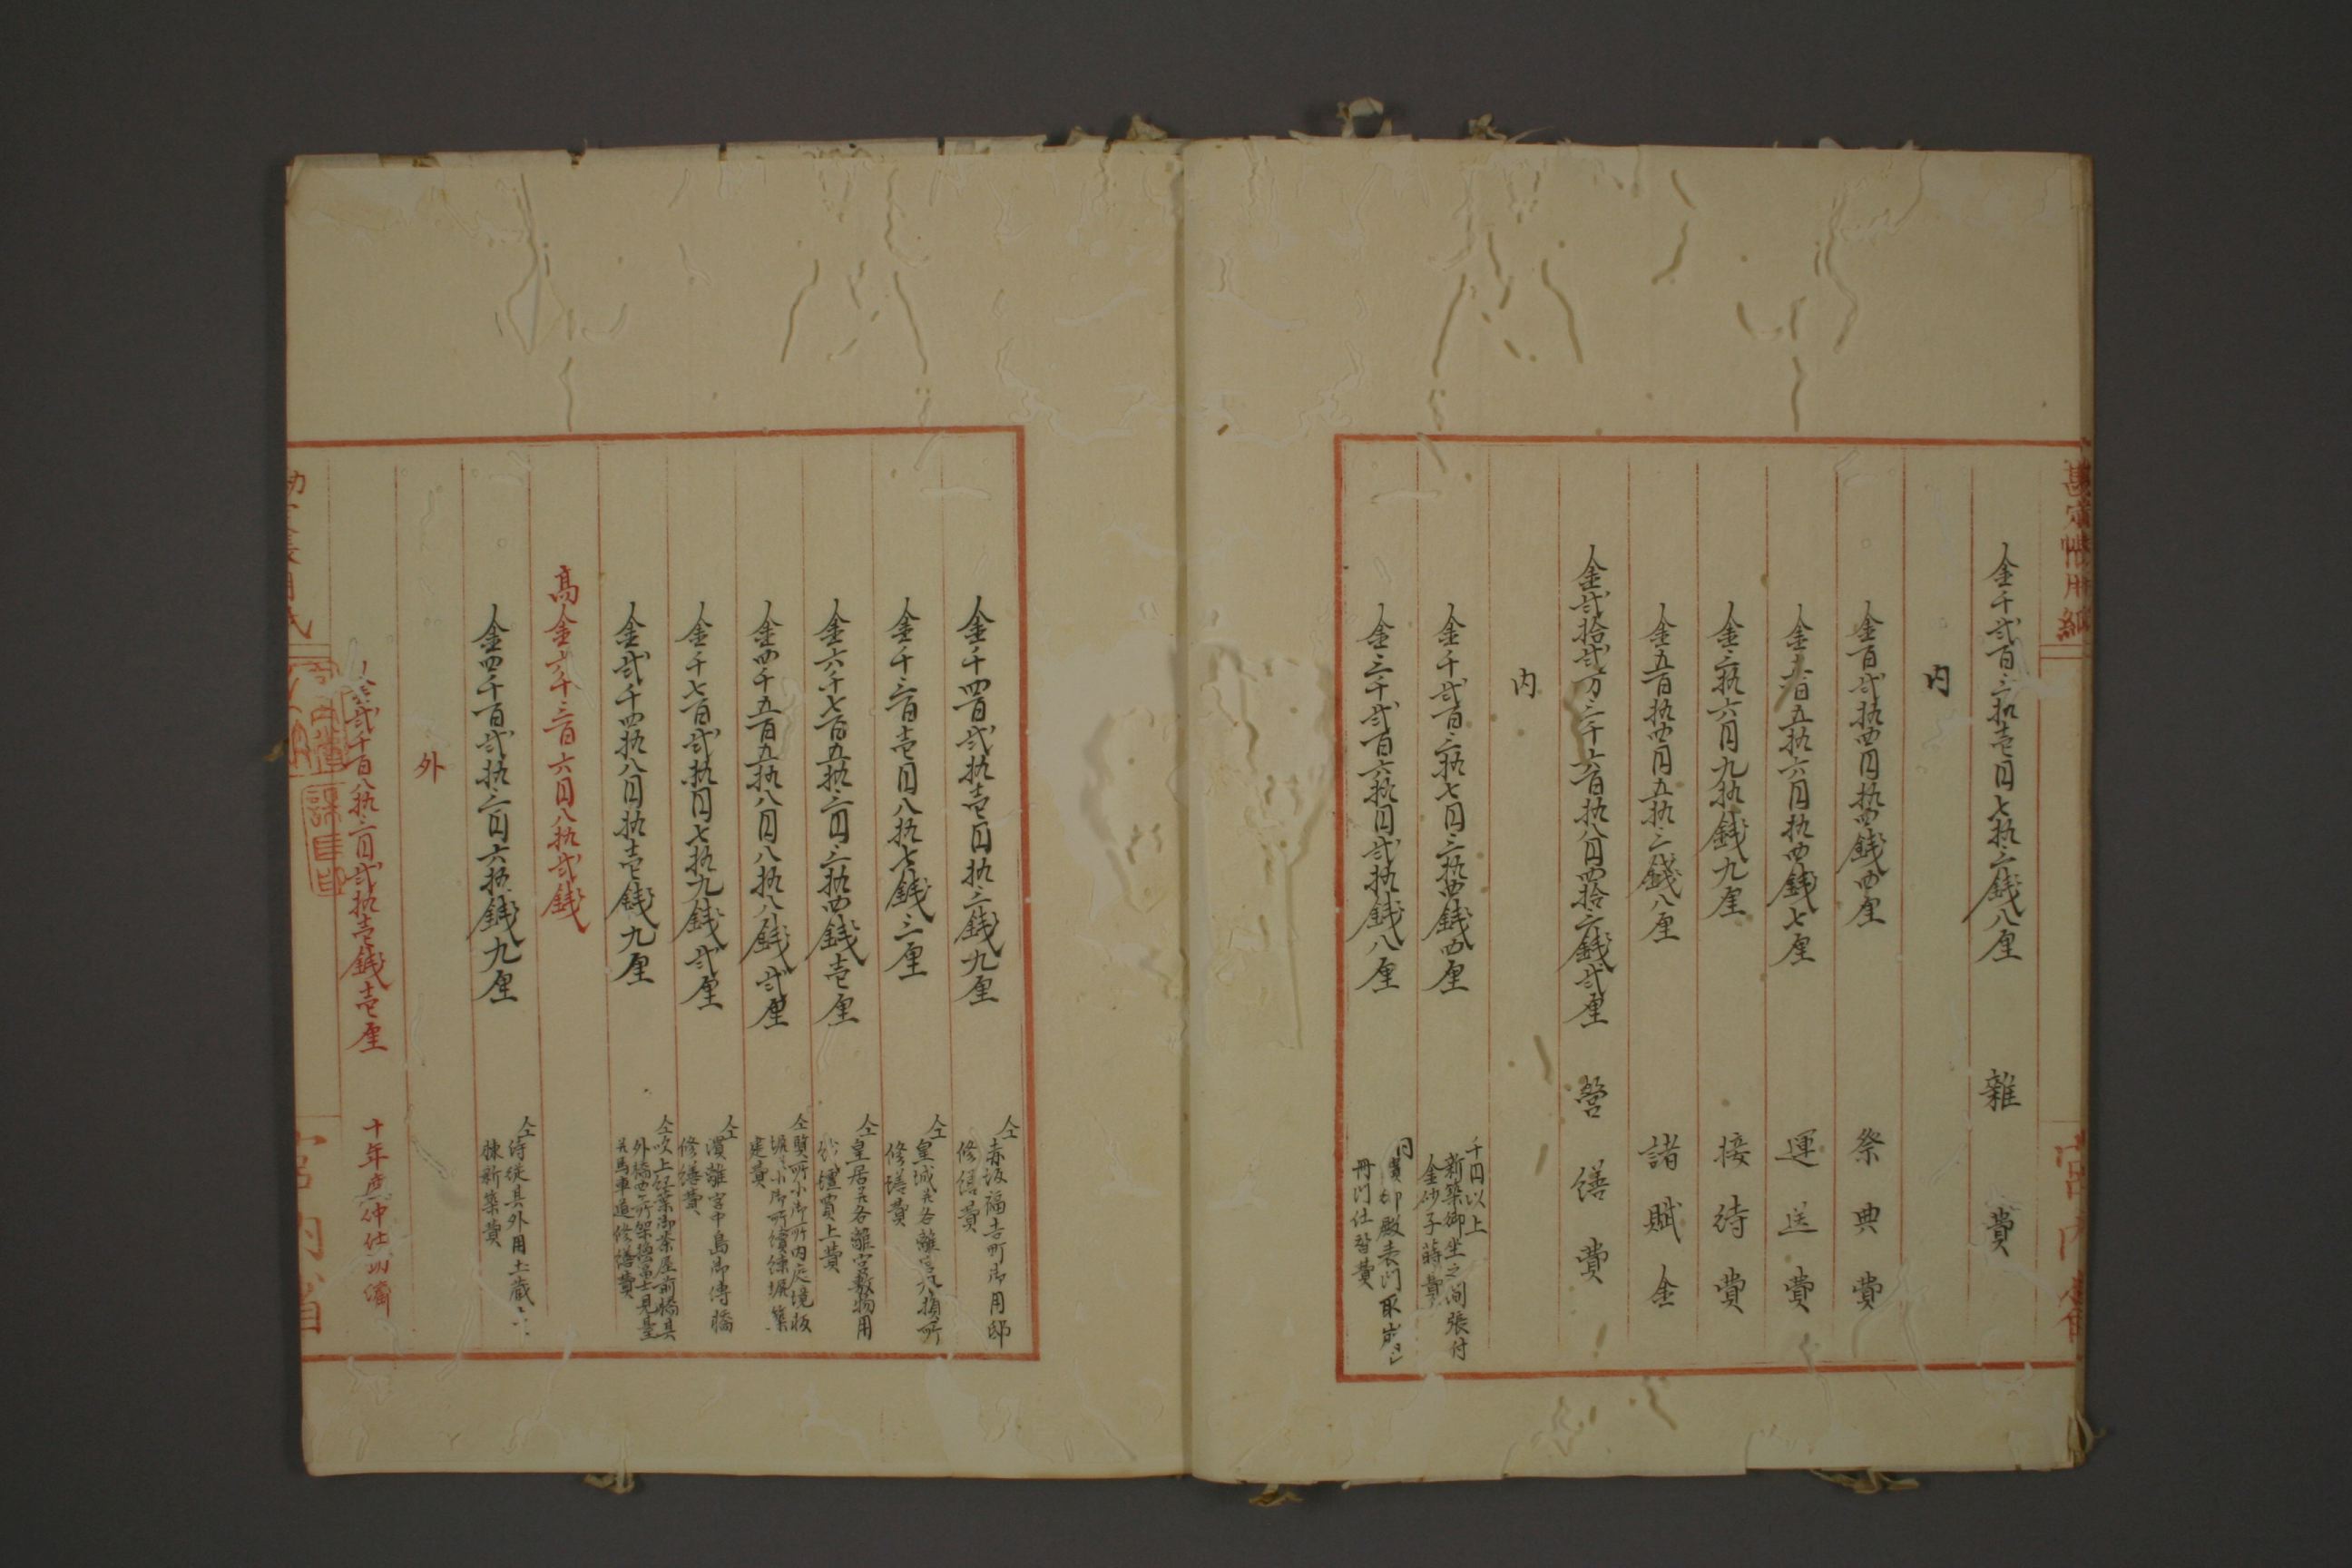 勘定帳用紙
宮内省
一金千弐百三拾壱円七拾三銭八厘 雑費
内
金百弐拾四円拾四銭四厘 祭典費
金六百五拾六円拾四銭七厘 運送費
金三拾六円九拾銭九厘 接待費
金五百拾四円五拾三銭八厘 諸賦金
一金弐拾弐万三千六百拾八円四拾三銭弐厘 営繕費
内
一金千弐百三拾七円三拾四銭四厘 千円以上
新築御坐之間張付
金砂子蒔費
一金三千弐百六拾円弐拾銭八厘 同
御殿表門取建
冊門仕替費
一金千四百弐拾壱円拾三銭九厘 仝
赤坂福吉町御用邸
修繕費
一金千三百壱円八拾七銭三厘 仝
皇城并各離宮八損所
修繕費
一金六千七百五拾三円三拾四銭壱厘 仝
皇居并各離宮敷物用
絨氈買上費
一金四千五百五拾八円八拾八銭弐厘 仝
賢所小御所内庭境板
塀并小御所續練塀築
建費
一金千七百弐拾円七拾九銭弐厘 仝
濱離宮中島御傳橋
修繕費
一金弐千四拾八円拾壱銭九厘 仝
吹上紅葉御茶屋前橋其
外橋四ヶ所架換富士見臺
并馬車道修繕費
高金六千三百六円八拾弐銭
一金四千百弐拾三円六拾銭九厘 仝
侍従其外用土蔵二
棟新築費
外
一金弐千百八拾三円弐拾壱銭壱厘 十年度仲仕切濟
宮内省